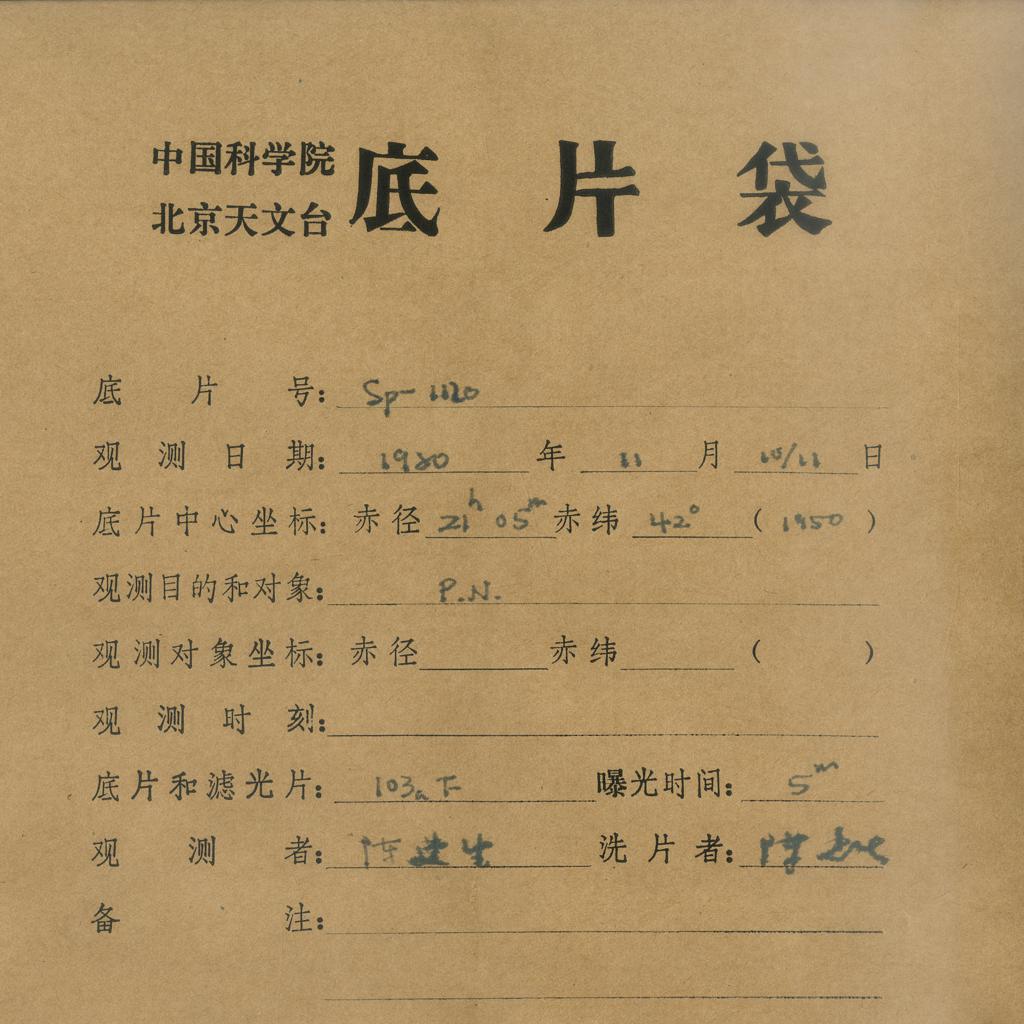 中国科学院
北京天文台
底片袋
底片号: Sp-1120
观测日期: 1980 年 11 月 10/11 日
底片中心坐标: 赤径 21h 05m 赤纬 42° ( 1950 )
观测目的和对象: P.N.
观测对象坐标: 赤径 赤纬 ( )
观测时刻:
底片和滤光片: 103aF 曝光时间: 5m
观测者: 陈建生 洗片者: 陈
备注: